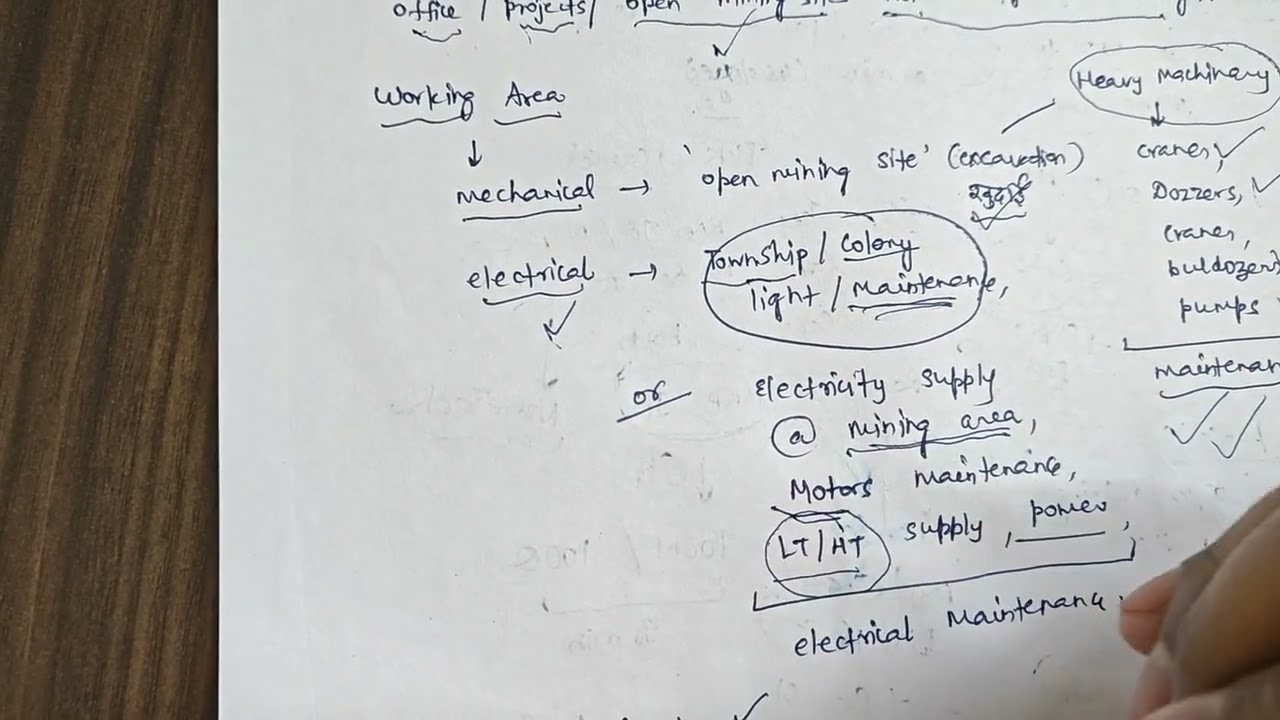 office / projects / open mining site
Heavy Machinary
Working Area
mechanical → 'open mining site' (excavation)
खुदाई
cranes,
Dozzers,
cranes,
buldozers
pumps
maintenan
electrical → Township / Colony
light / Maintenance,
or Electricity supply
@ mining area,
Motors maintenance,
LT/HT supply, power,
electrical Maintenance.